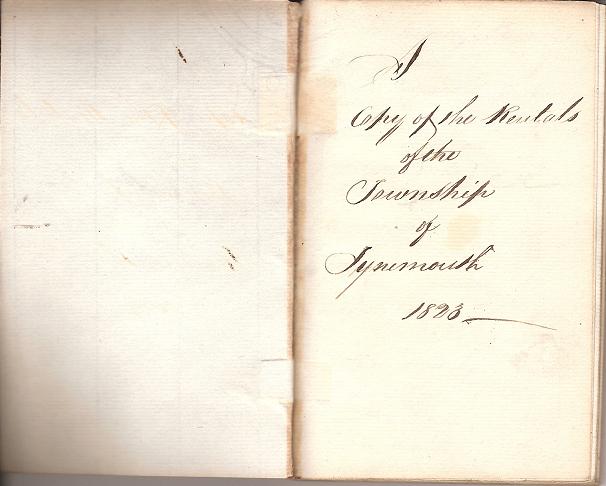 A
Copy of the Rentals
of the
Township
of
Tynemouth
1823